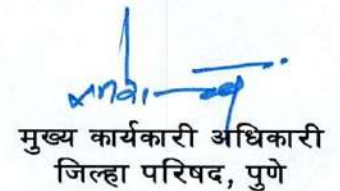 मुख्य कार्यकारी अधिकारी
जिल्हा परिषद, पुणे